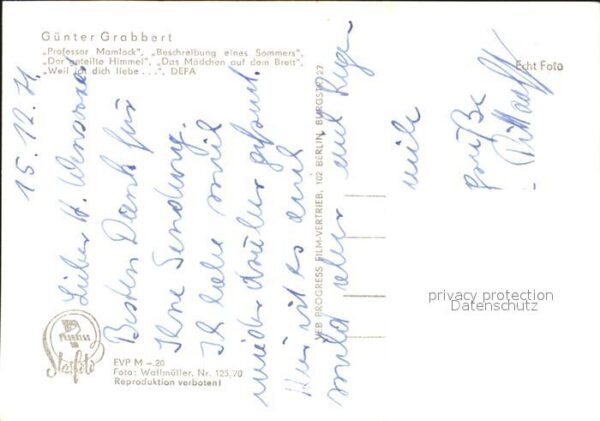 Günter Grabbert
„Professor Mamlock", „Beschreibung eines Sommers",
„Der geteilte Himmel", „Das Mädchen auf dem Brett",
„Weil ich dich liebe . . .", DEFA
Echt Foto
15. 12. 71.
Lieber H.
Besten Dank für
Ihre Sendung.
Ich habe mich
wieder darüber gefreut.
Hier ist es auch
mild aber auch Regen
viele
Grüße
VEB PROGRESS FILM-VERTRIEB, 102 BERLIN, BURGSTR. 27
Progress
Starfoto
EVP M –.20
Foto: Wallmüller, Nr. 125,70
Reproduktion verboten!
privacy protection
Datenschutz